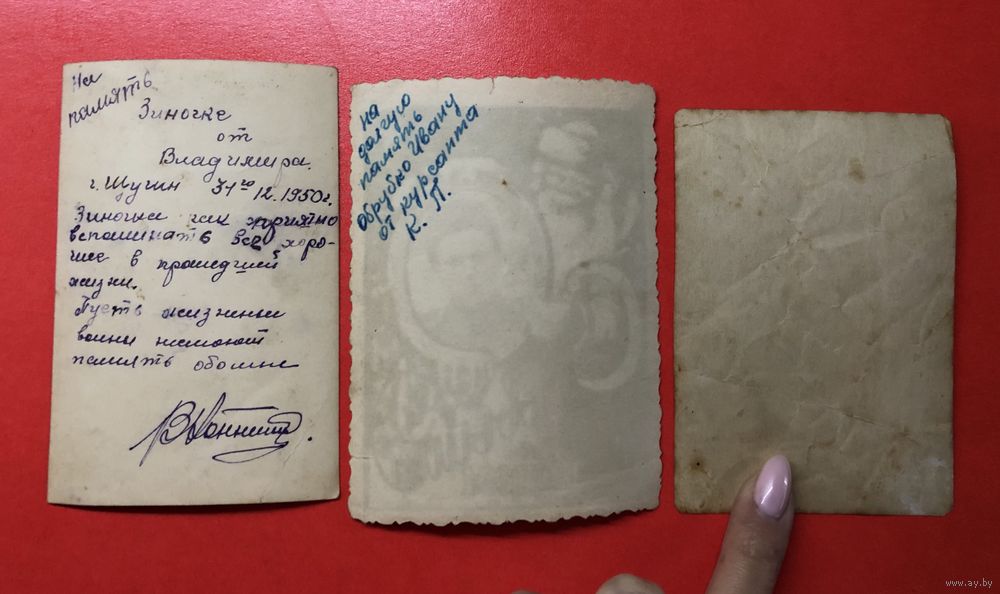 На
память
Зиночке
от
Владимира.
г. Щучин 31го 12. 1950г.
Зиночка как приятно
вспоминать все хоро-
шие в прошедшей
жизни.
Пусть жизнены
волны
память обо мне
на
долгую
память
Обрубко Ивану
от курсанта
К. П.
www.ay.by